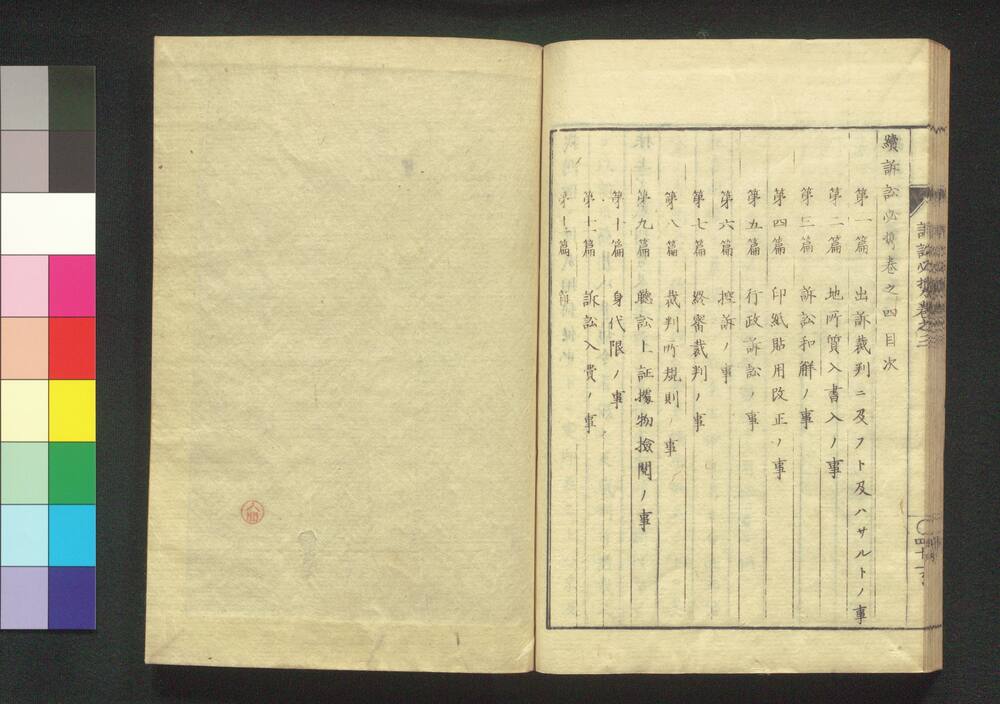 續訴訟必携卷之四目次
第一篇 出訴裁判ニ及フト及ハサルトノ事
第二篇 地所質入書入ノ事
第三篇 訴訟和解ノ事
第四篇 印紙貼用改正ノ事
第五篇 行政訴訟ノ事
第六篇 控訴ノ事
第七篇 終審裁判ノ事
第八篇 裁判所規則ノ事
第九篇 聽訟上証據物撿閲ノ事
第十篇 身代限ノ事
第十一篇 訴訟入費ノ事
第十二篇
訴訟必携卷之三
四十一